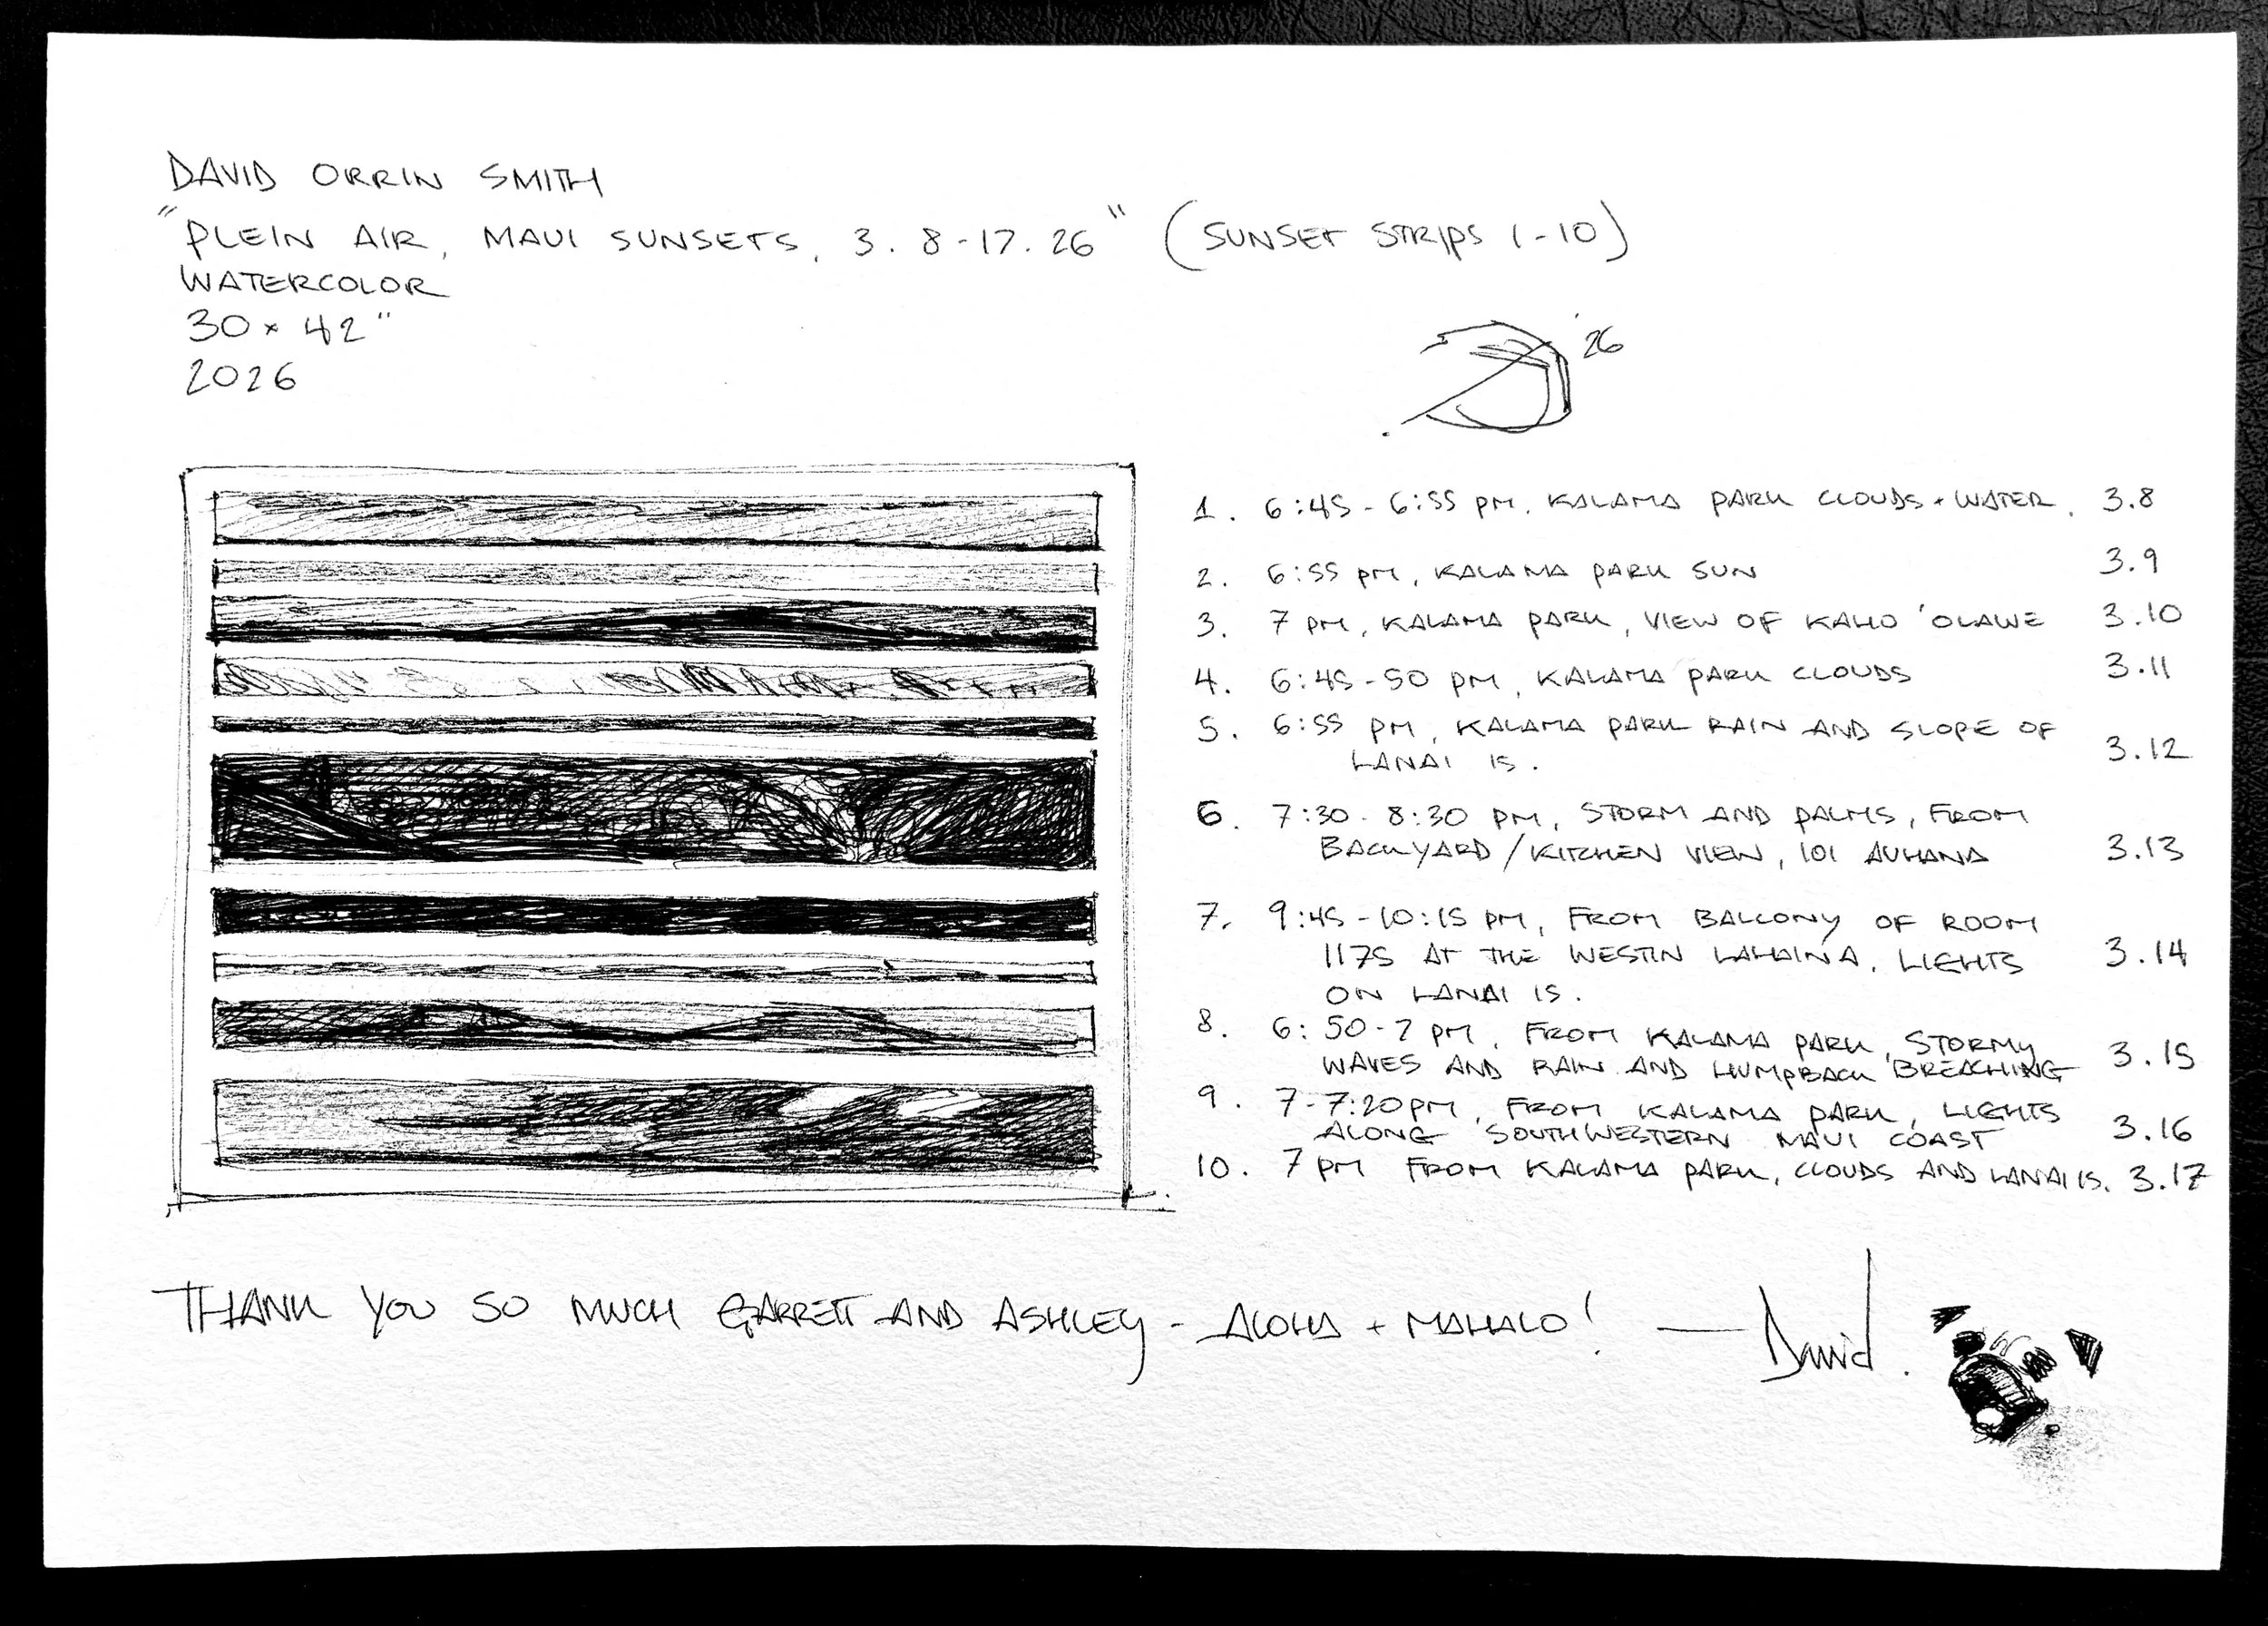 DAVID ORRIN SMITH
"PLEIN AIR, MAUI SUNSETS, 3. 8-17. 26" (SUNSET STRIPS 1-10)
WATERCOLOR
30 x 42"
2026
'26
1. 6:45 - 6:55 PM, KALAMA PARK CLOUDS + WATER, 3.8
2. 6:55 PM, KALAMA PARK SUN 3.9
3. 7 PM, KALAMA PARK, VIEW OF KAHO 'OLAWE 3.10
4. 6:45-50 PM, KALAMA PARK CLOUDS 3.11
5. 6:55 PM, KALAMA PARK RAIN AND SLOPE OF
LANAI IS. 3.12
6. 7:30 - 8:30 PM, STORM AND PALMS, FROM
BACKYARD/KITCHEN VIEW, 101 AUHANA 3.13
7. 9:45-10:15 PM, FROM BALCONY OF ROOM
1175 AT THE WESTIN LAHAINA, LIGHTS 3.14
ON LANAI IS.
8. 6:50-7 PM, FROM KALAMA PARK, STORMY
WAVES AND RAIN AND HUMPBACK BREACHING 3.15
9. 7-7:20PM, FROM KALAMA PARK, LIGHTS
ALONG SOUTHWESTERN MAUI COAST 3.16
10. 7 PM FROM KALAMA PARK, CLOUDS AND LANAI IS. 3.17
THANK YOU SO MUCH GARRETT AND ASHLEY - ALOHA + MAHALO! — David.